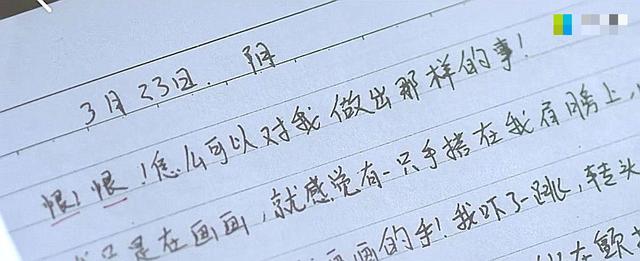 3月23日. 阴
恨！恨！怎么可以对我做出那样的事！
只是在画画，就感觉有一只手搭在我肩膀上，
画画的手！我吓了一跳，转头
在颤